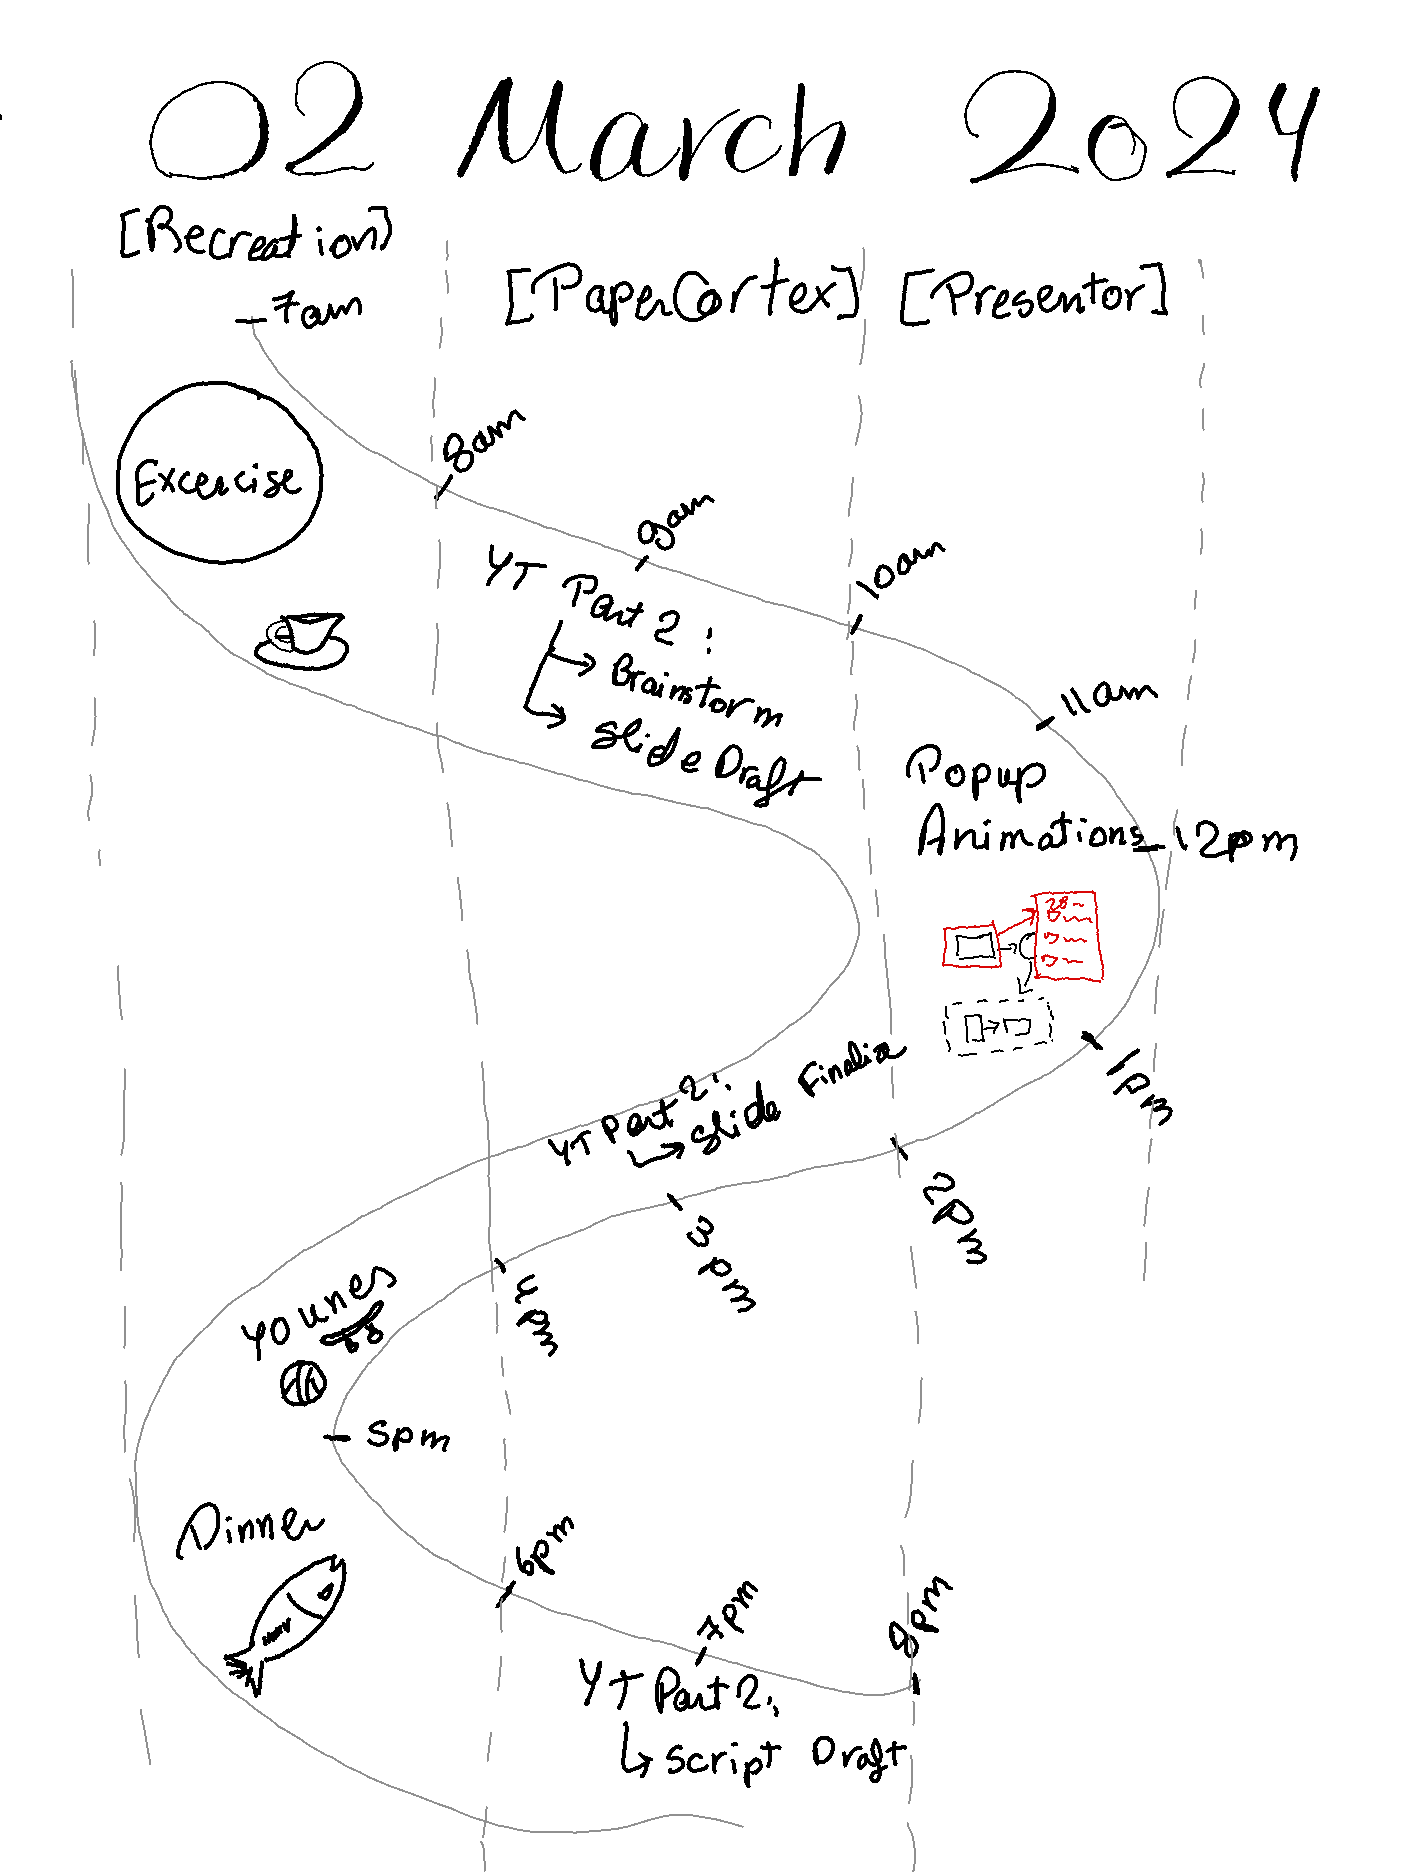 02 March 2024
[Recreation]
[PaperCortex]
[Presentor]
7am
Excercise
8am
9am
YT Part 2:
Brainstorm
Slide Draft
10am
11am
Popup
Animations
12pm
1pm
2pm
YT Part 2:
Slide Finalize
3pm
4pm
Younes
5pm
Dinner
6pm
7pm
8pm
YT Part 2:
Script Draft